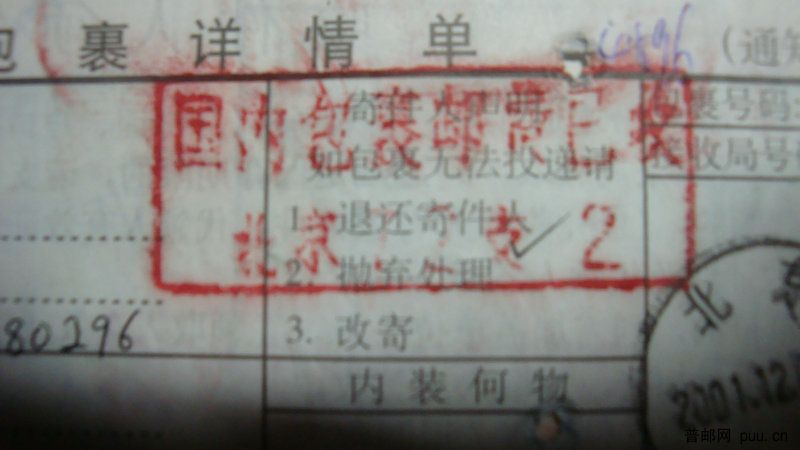 包裹详情单
(通知
国内包裹邮资已
寄件人声明
包裹号码
如包裹无法投递请
接收局号
1. 退还寄件人
北京
支 2
2. 抛弃处理
80296
3. 改寄
北
内装何物
2001.12
普邮网 puu.cn